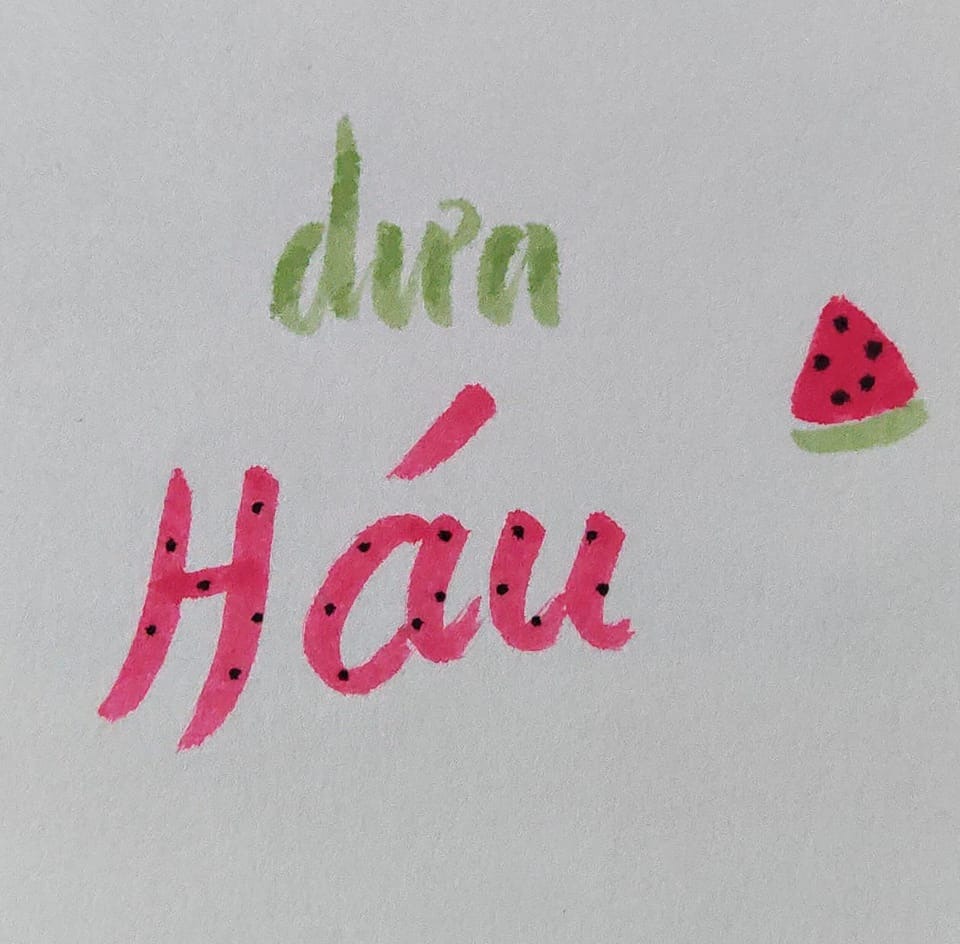 dưa
Háu